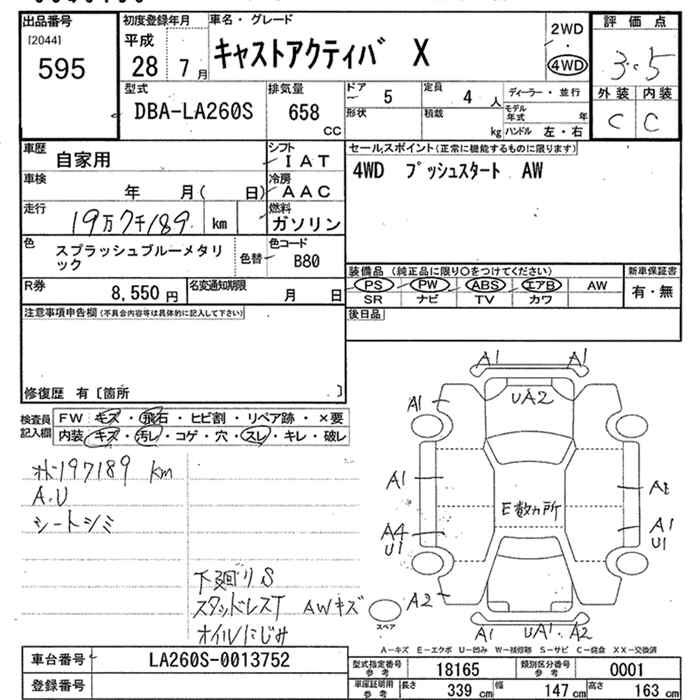 出品番号
[2044]
595
初度登録年月
平成
28 7月
車名・グレード
キャストアクティバ X
2WD
・
4WD
評価点
3.5
外装 内装
C C
型式
DBA-LA260S
排気量
658
CC
ドア 5
定員 4 人
形状
積載 kg
ディーラー・並行
モデル年式 年
ハンドル 左・右
車歴
自家用
シフト
IAT
車検
年 月( 日)
冷房
AAC
走行
19万7千189 km
燃料
ガソリン
色
スプラッシュブルーメタリック
色替
色コード
B80
R券
8,550 円
名変通知期限
月 日
セールスポイント(正常に機能するものに限ります)
4WD プッシュスタート AW
装備品 (純正品に限り○をつけてください)
PS PW ABS エアB AW
SR ナビ TV カワ
新車保証書
有・無
後日品
注意事項申告欄(不具合内容等は具体的に記入して下さい)
修復歴 有〔箇所 〕
検査員記入欄
FW キズ・飛石・ヒビ割・リペア跡・×要
内装 キズ・汚レ・コゲ・穴・スレ・キレ・破レ
メーター197189 km
A.U
シートシミ
下廻りS
スタッドレスT AWキズ
オイルにじみ
A1 A1
UA2
A1
A1
E数ヵ所
A2
A4
U1
A1
U1
A2
A1 UA1 A2
スペア
A-キズ E-エクボ U-凹み W-補修跡 S-サビ C-腐食 XX-交換済
車台番号
LA260S-0013752
登録番号
型式指定番号
参考
18165
類別区分番号
参考
0001
車庫証明用
参考
長さ 339 cm
幅 147 cm
高さ 163 cm